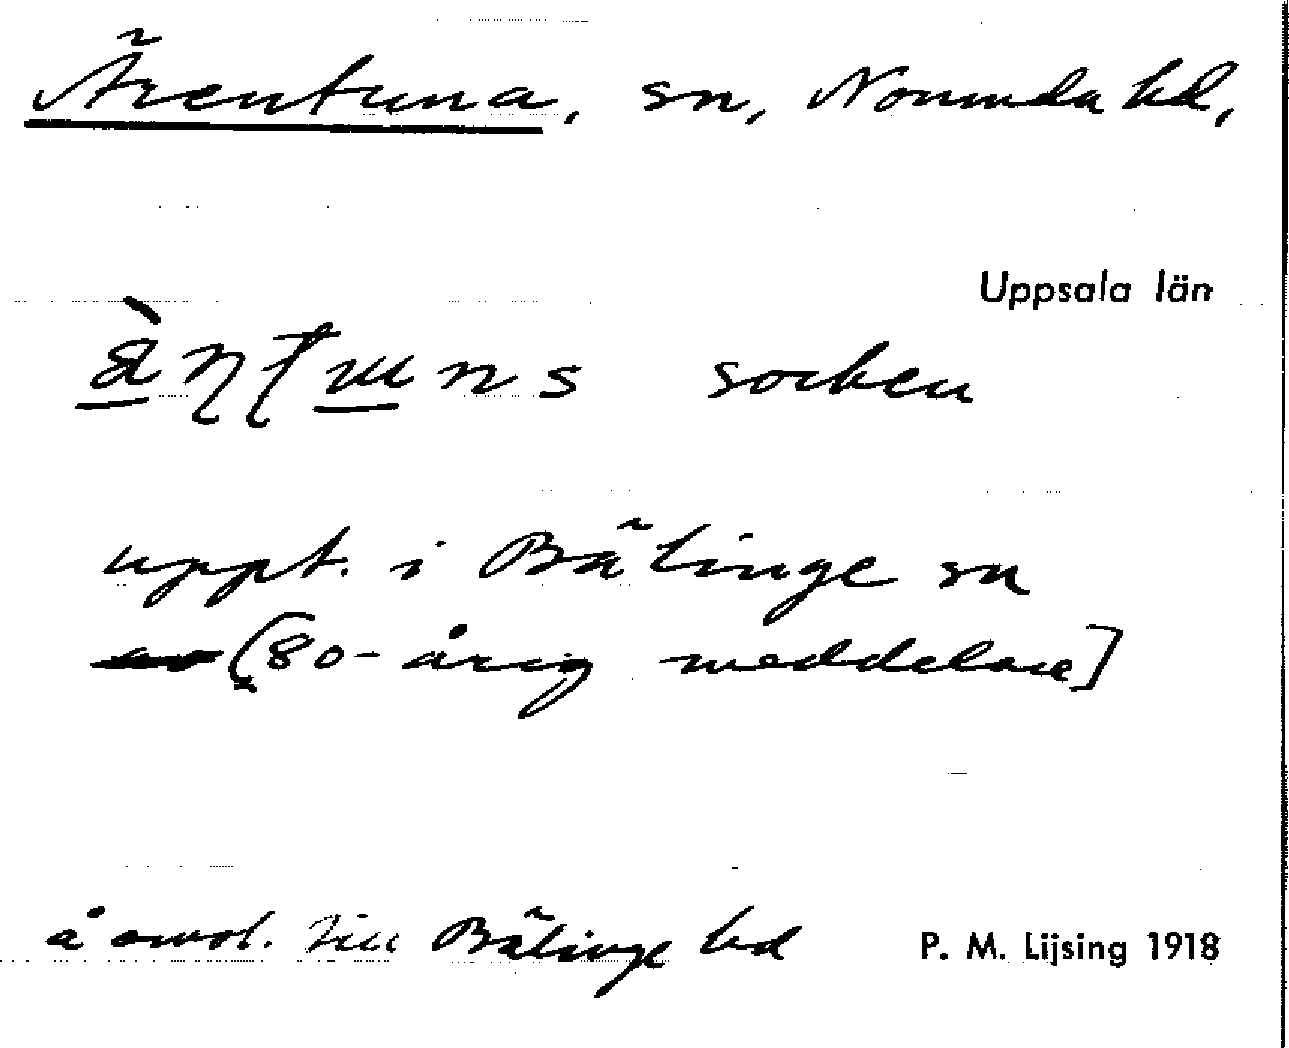 Ärentuna, sn, Norunda hd,
Uppsala län
socken
uppt. i Bälinge sn
(80-årig meddelare]
å omsl. till Bälinge hd
P. M. Lijsing 1918